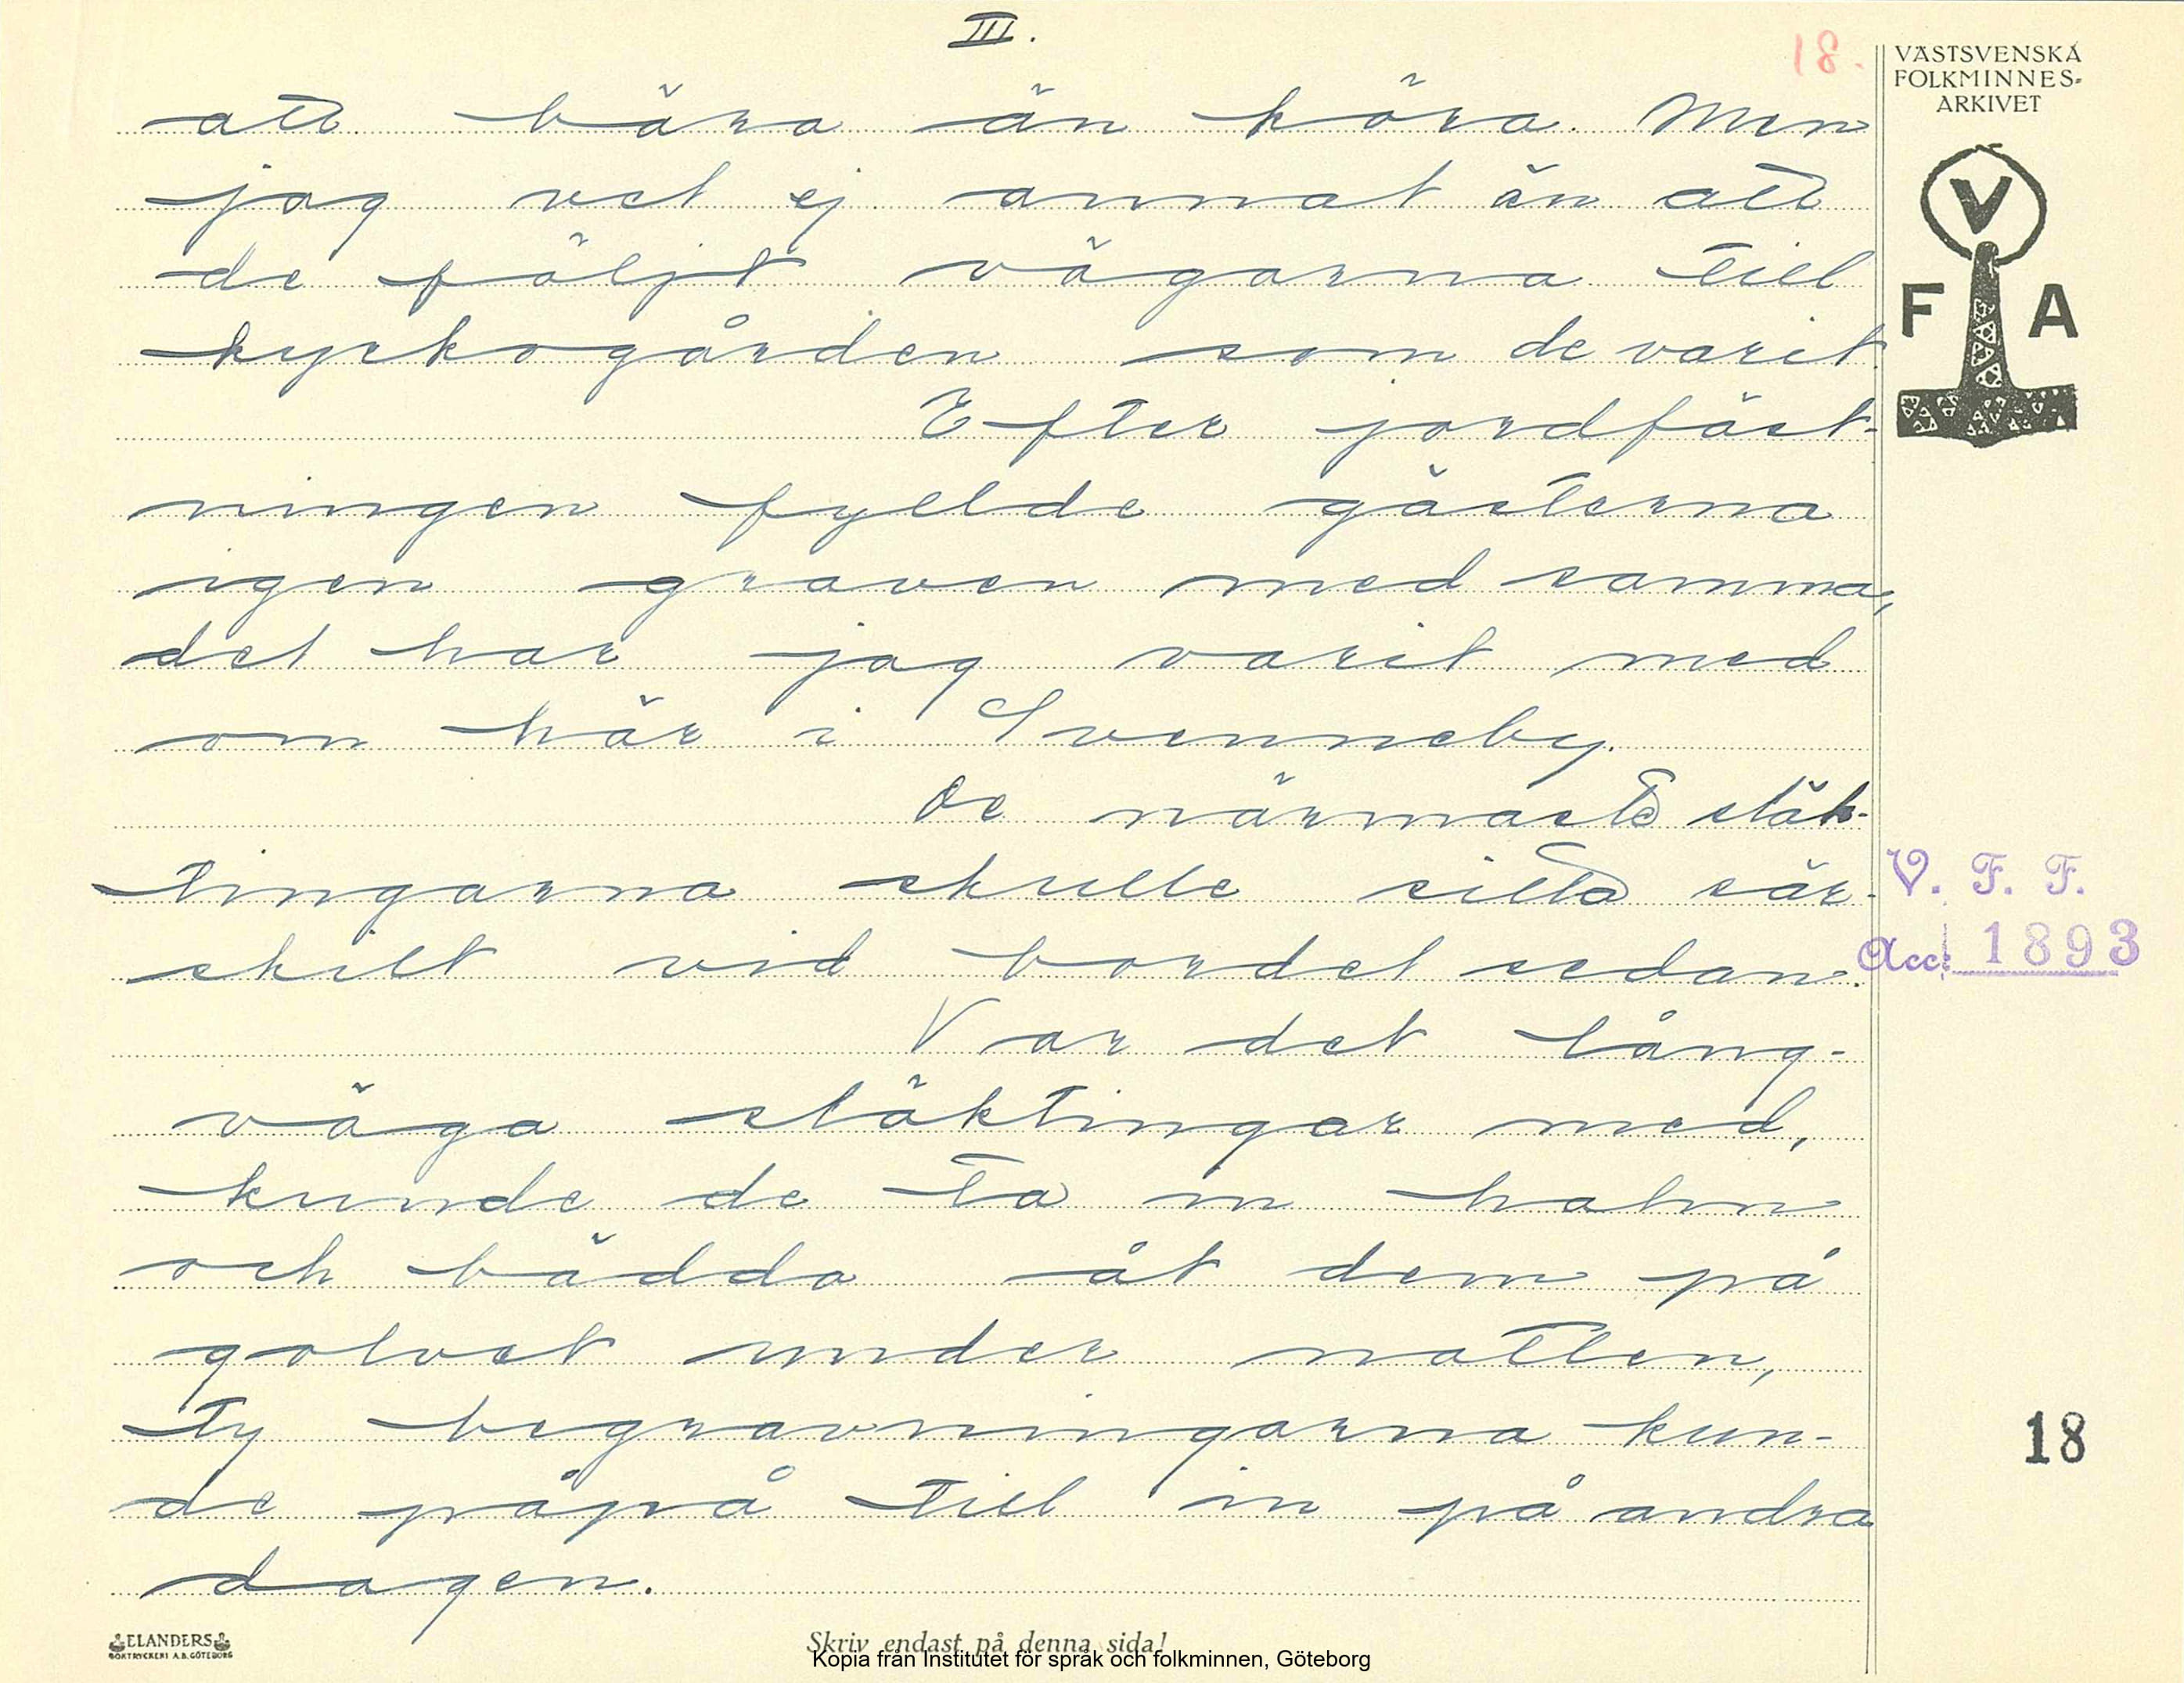 III.
18.
VÄSTSVENSKA
FOLKMINNES-
ARKIVET
V
F A
att bära än köra. Men
jag vet ej annat än att
de följt vägarna till
kyrkogården som de varit.
Efter jordfäst-
ningen fyllde gästerna
igen graven med samma,
det har jag varit med
om här i Svenneby.
De närmaste släk-
tingarna skulle sitta sär-
skilt vid bordet sedan.
V. F. F.
Acc: 1893
Var det lång-
väga släktingar med,
kunde de ta in halm
och bädda åt dem på
golvet under natten,
ty begravningarna kun-
de påpå till in på andra
dagen.
18
ELANDERS
BOKTRYCKERI A.B. GÖTEBORG
Skriv endast på denna sida!
Kopia från Institutet för språk och folkminnen, Göteborg